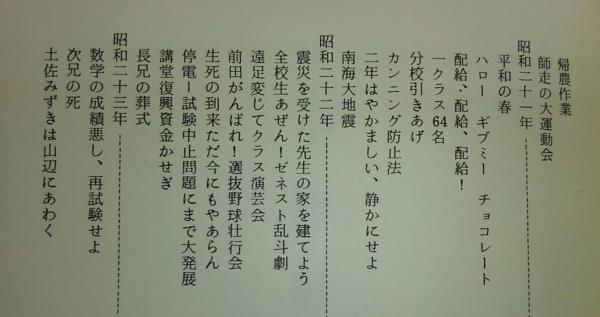 帰農作業
師走の大運動会
昭和二十一年
平和の春
ハロー ギブミー チョコレート
配給、配給、配給！
一クラス64名
分校引きあげ
カンニング防止法
二年はやかましい、静かにせよ
南海大地震
昭和二十二年
震災を受けた先生の家を建てよう
全校生あぜん！ゼネスト乱斗劇
遠足変じてクラス演芸会
前田がんばれ！選抜野球壮行会
生死の到来ただ今にもやあらん
停電―試験中止問題にまで大発展
講堂復興資金かせぎ
長兄の葬式
昭和二十三年
数学の成績悪し、再試験せよ
次兄の死
土佐みずきは山辺にあわく